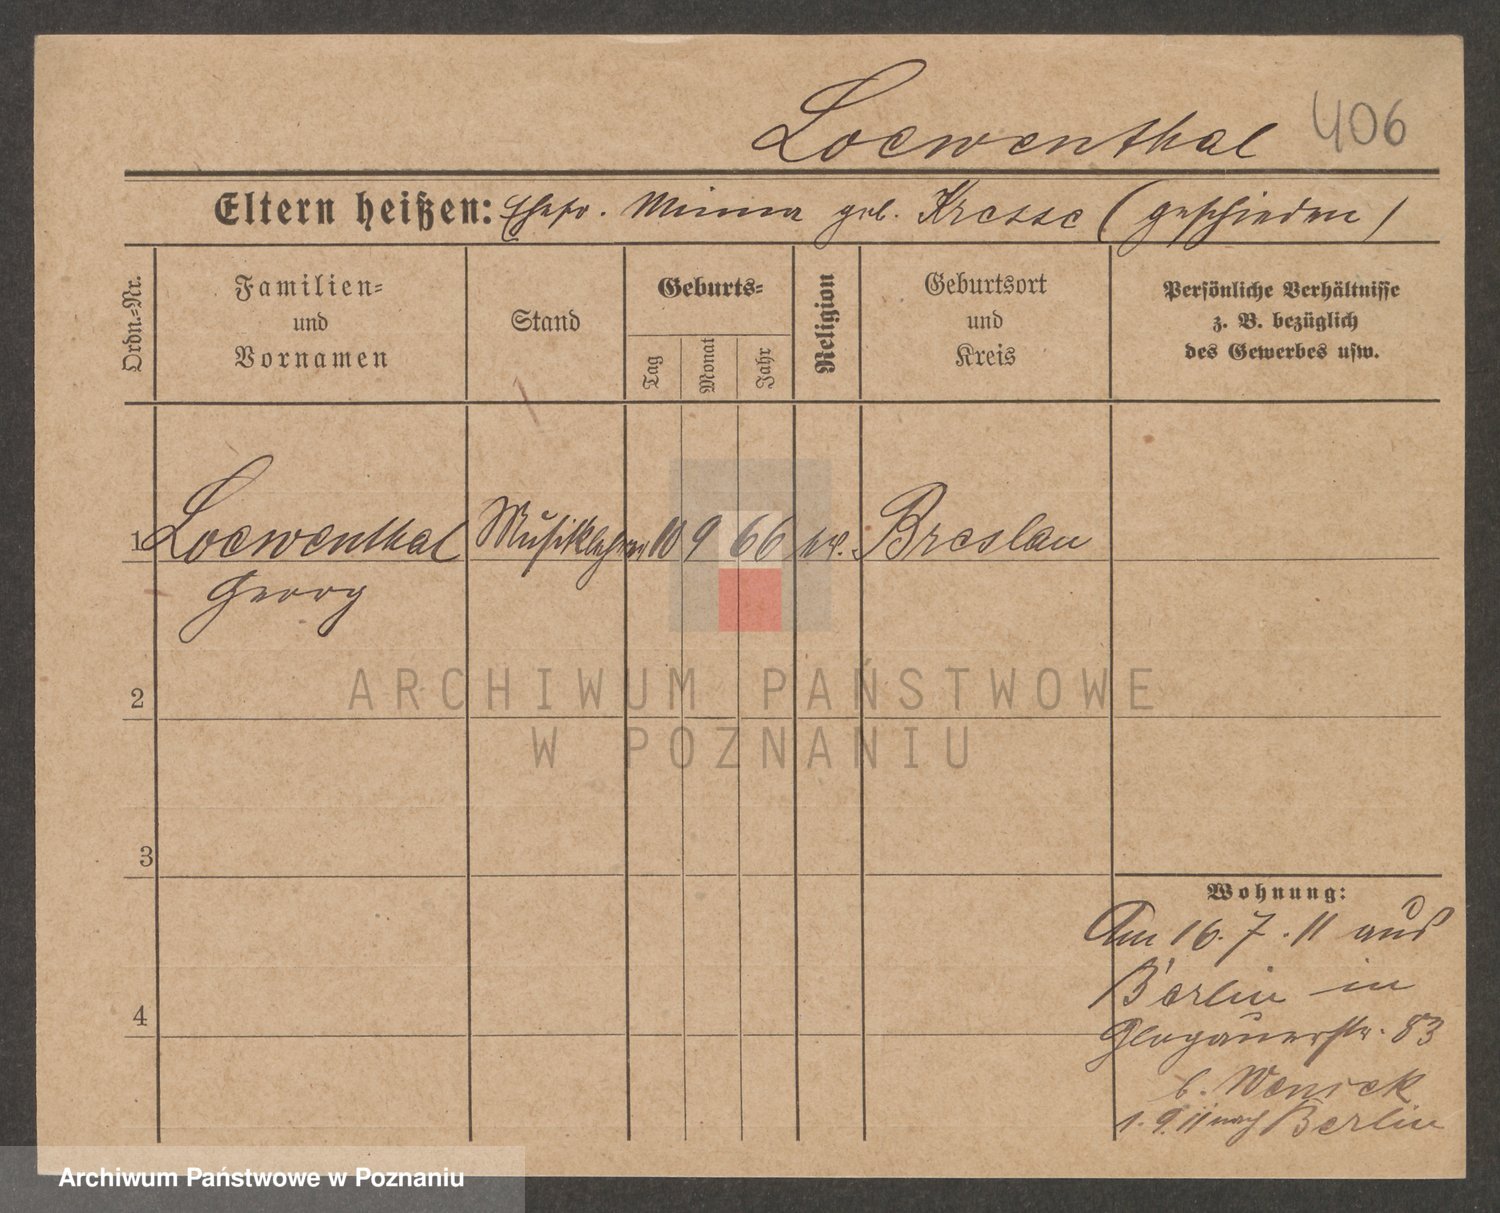 Loewenthal 406
Eltern heißen: Ehefr. Minna geb. Kresse (geschieden)
Ordn.=Nr.
Familien=
und
Vornamen
Stand
Geburts=
Tag
Monat
Jahr
Religion
Geburtsort
und
Kreis
Persönliche Verhältnisse
z. B. bezüglich
des Gewerbes usw.
1 Loewenthal Musiklehrer 10 9 66 Breslau
Georg
ARCHIWUM PAŃSTWOWE
W POZNANIU
2
3
4
Wohnung:
Am 16.7.11 aus
Berlin in
Glogauerstr. 83
b.
1.9.11 nach Berlin
Archiwum Państwowe w Poznaniu